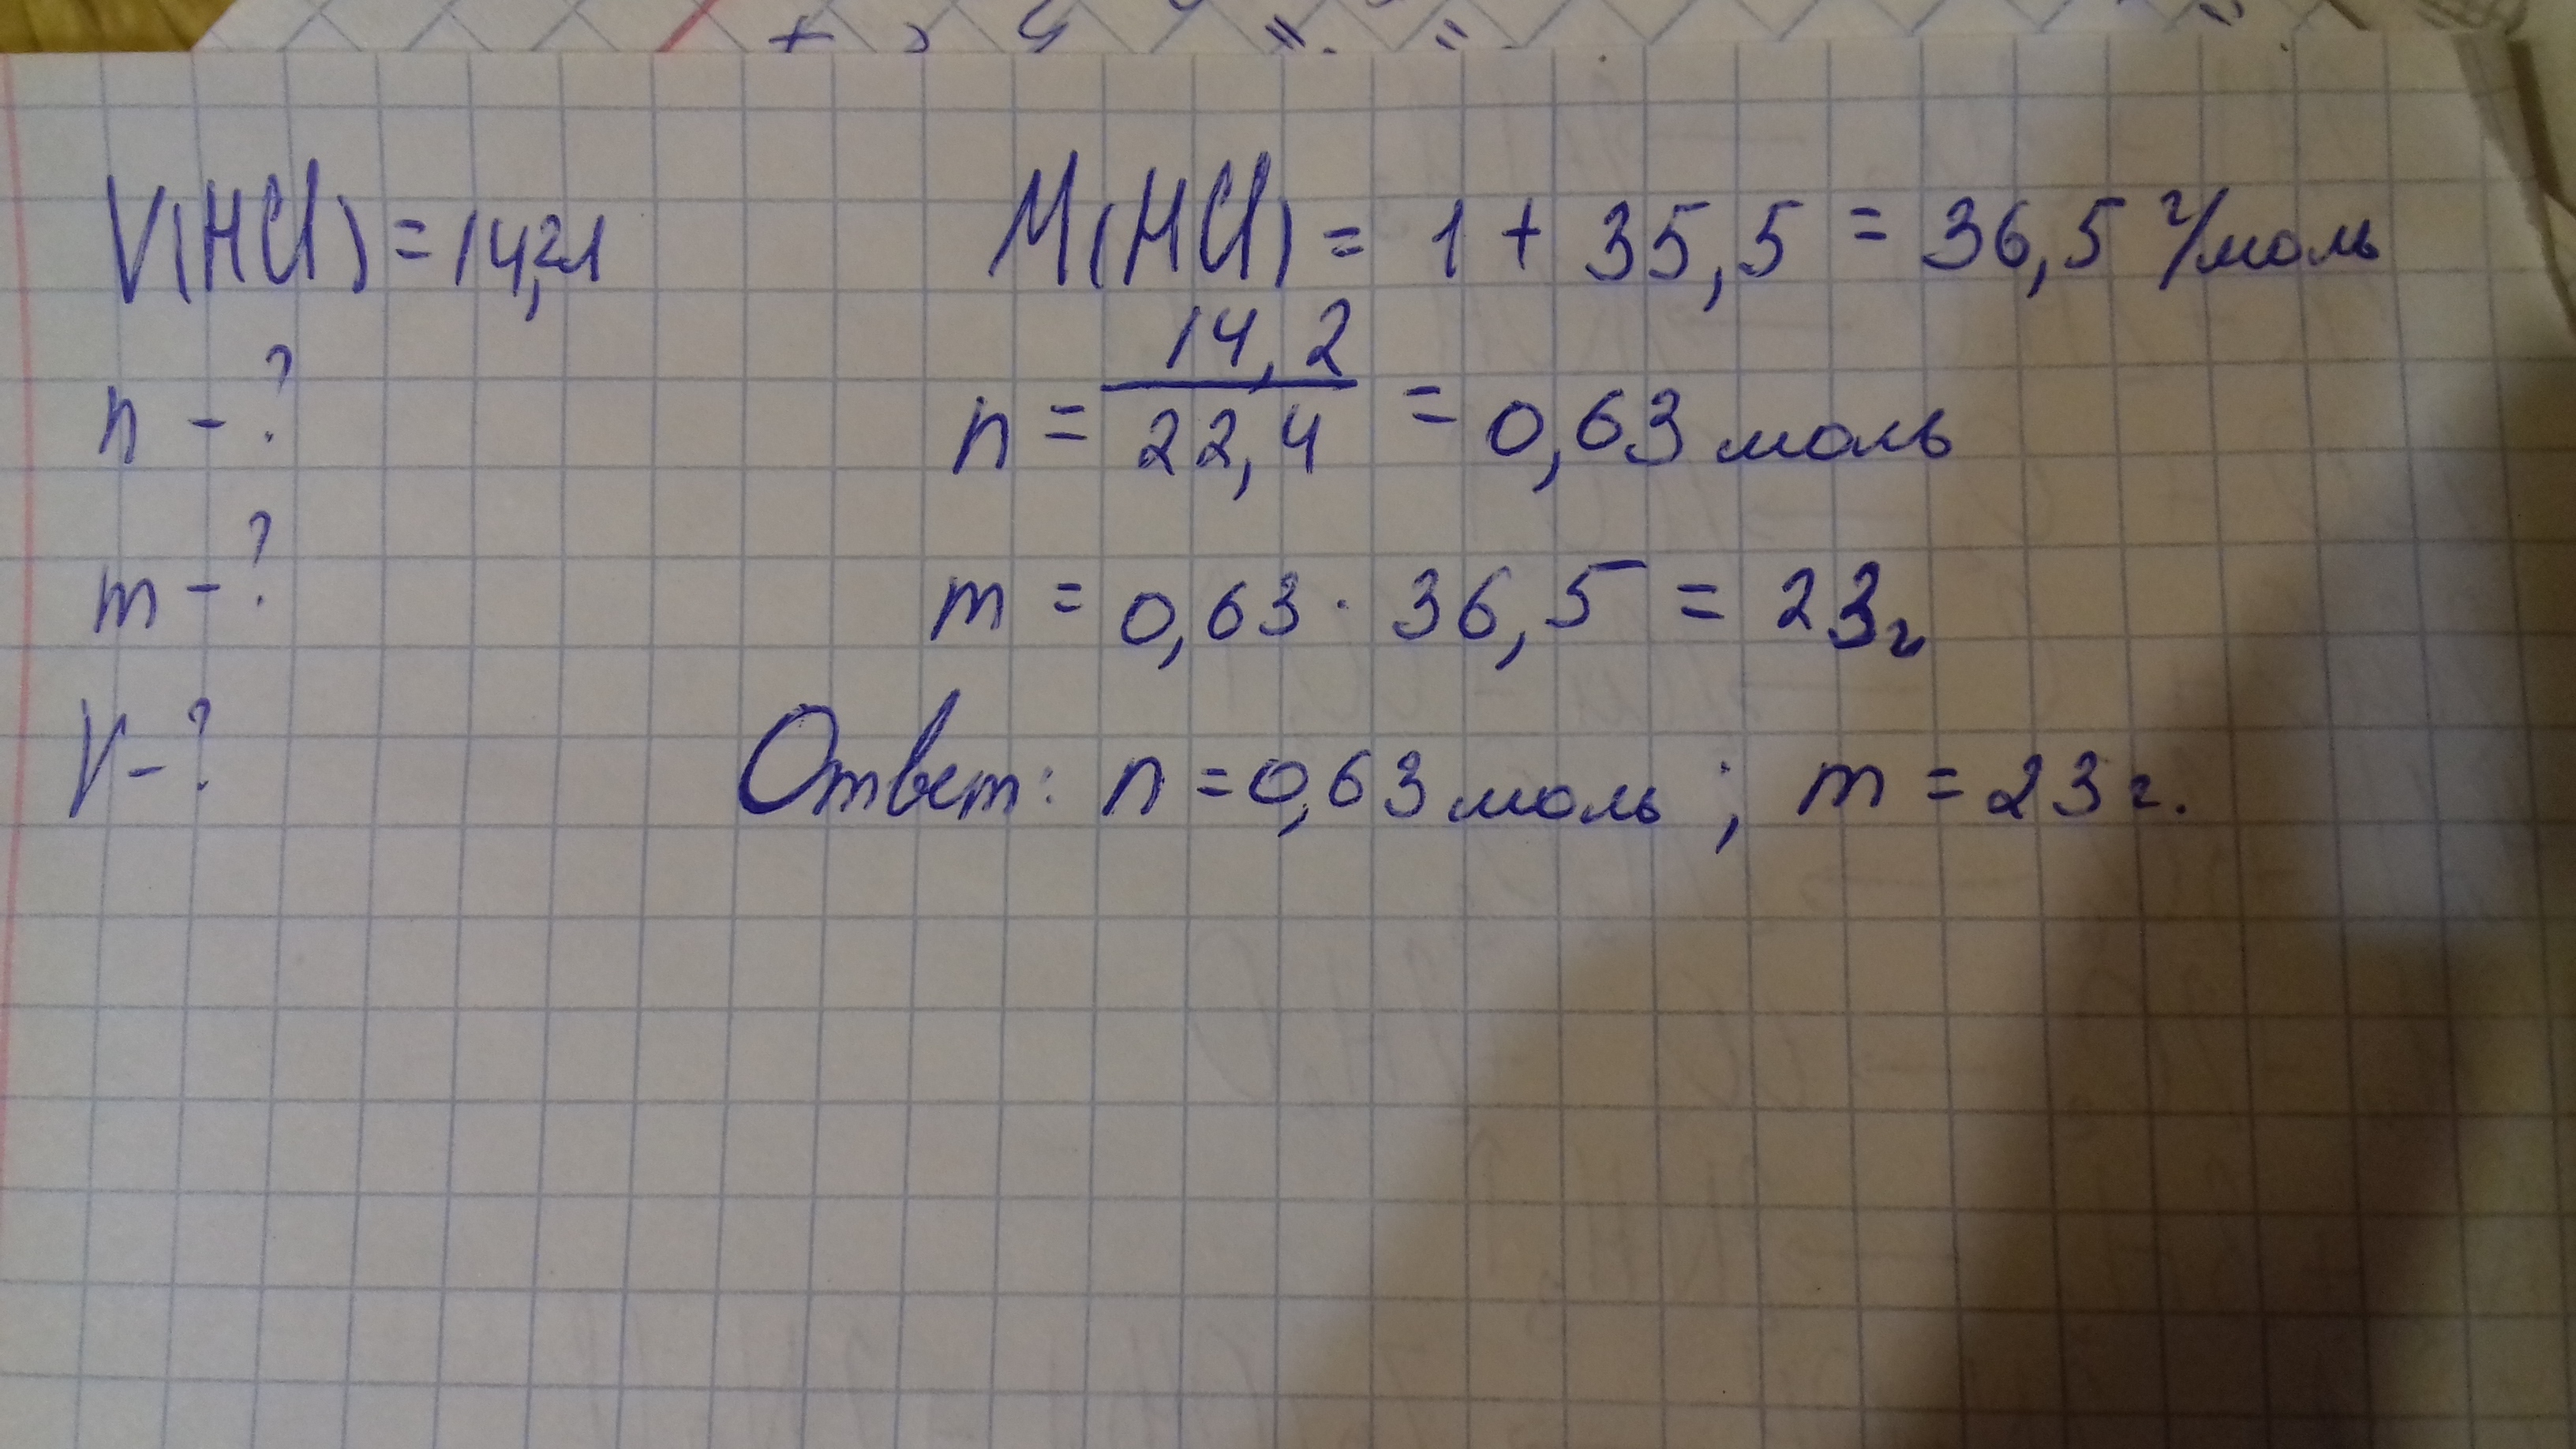 V(HCl) = 14,2л
M(HCl) = 1 + 35,5 = 36,5 г/моль
n - ?
n = 14,2 / 22,4 = 0,63 моль
m - ?
m = 0,63 · 36,5 = 23г
V - ?
Ответ: n = 0,63 моль ; m = 23 г.